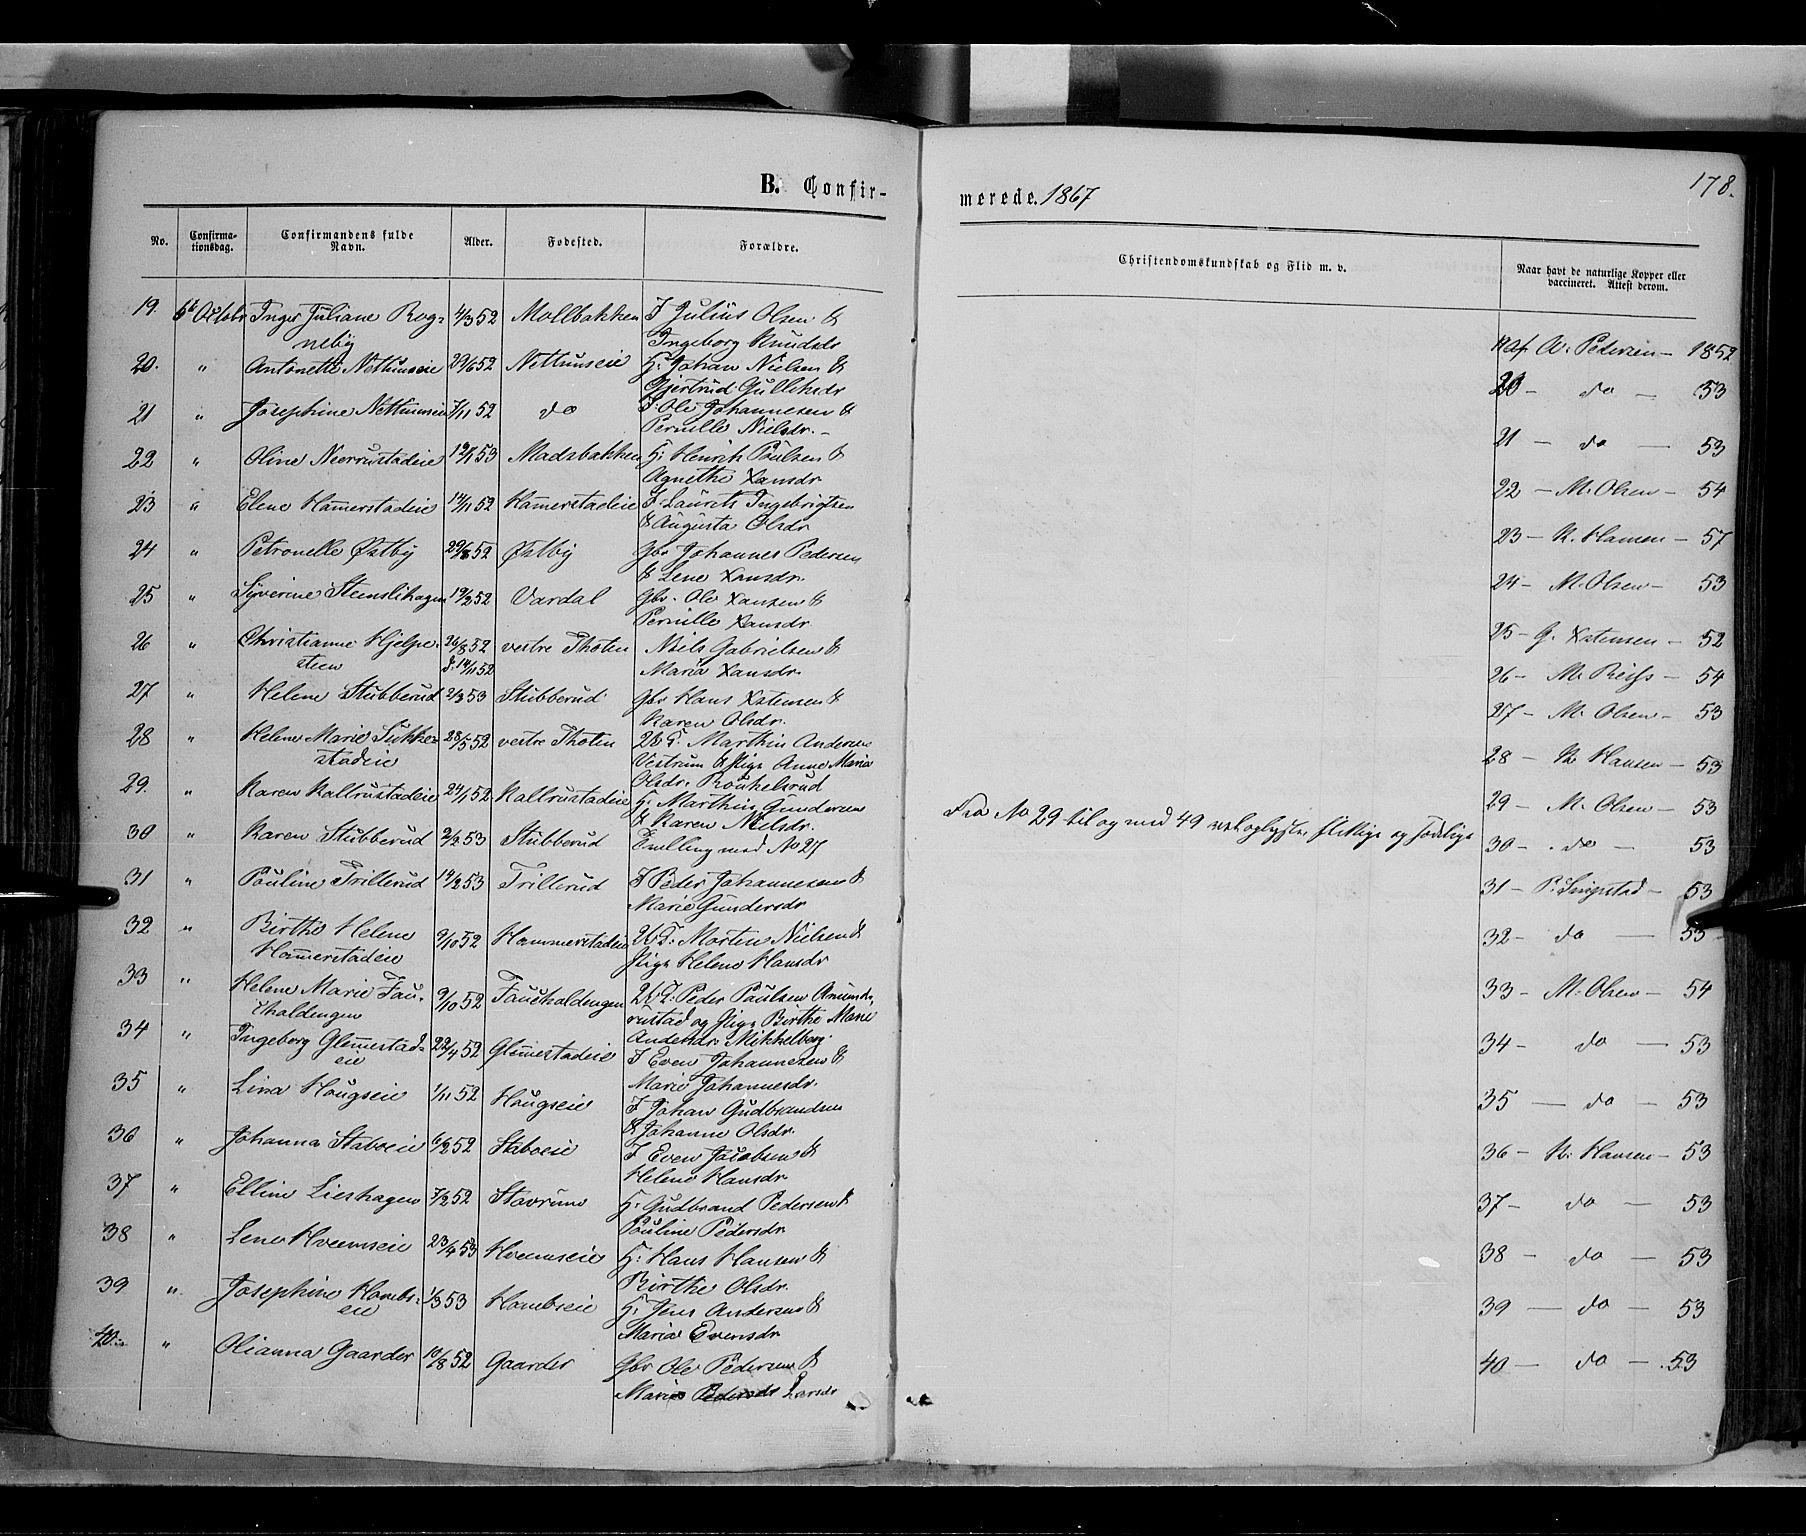 B. Confir-
No. Confirma-tionsdag. Confirmandens fulde Navn. Alder. Fødested. Forældre.
19. 6te Octobr Inger Juliane Rog- 4/3 52 Mollbakken I Julius Olsen &
neby Ingeborg Knudsdr
20. " Antonette Nettumseie 29/6 52 Nettumseie H: Johan Nielsen &
Gjertrud Gulliksdr
21 " Josephine Nettumseie 7/11 52 do I. Ole Johannesen &
Pernille Nielsdr. -
22 " Oline Neerrustadeie 19/1 53 Madsbakken H: Henrik Paulsen &
Agnethe Xansdr
23 " Elene Hamerstadeie 14/11 52 Hamerstadeie I. Laurits Ingebrigtsen
& Augusta Olsdr
24 " Petronelle Østby 29/8 52 Østby Gbr Johannes Pedersen
& Lene Xansdr.
25 " Syverine Steenslihagen 19/2 52 Vardal Gbr. Ole Xansen &
Pernille Xansdr
26 " Christianne Hjelpe- 26/8 52 vestre Thoten Niels Gabrielsen &
steen d. 14/11 52 Maria Xansdr.
27 " Helene Stubberud 2/2 53 Stubberud Gbr Hans Xstensen &
Karen Olsdr.
28 " Helene Marie Sukke- 28/5 52 vestre Thoten U.F. Marthin Andersen
stadeie Vestrum & Pige Anne Maria
Olsdr. Roukelsrud
29. " Karen Kallrustadeie 24/1 52 Kallrustadeie H: Marthin Gundersen
& Karen Nielsdr.
30 " Karen Stubberud 2/2 53 Stubberud Tvilling med No 27
31 " Pauline Trillerud 14/2 53 Trillerud I Peder Johannesen &
Marie Gundersdr
32 " Birthe Helene 9/10 52 Hammerstadeie U.F. Morten Nielsen &
Hamerstadeie Pige Helene Hansdr
33 " Helene Marie Fau- 9/10 52 Faucholdengen U.F. Peder Paulsen
choldengen rustad og Pige Birthe Marie
Andersdr Mikkelberg.
34 " Ingeborg Glemestad- 22/4 52 Glemestadeie I Even Johannesen &
eie Marie Johannesdr.
35 " Lina Haugseie 1/11 52 Haugseie I Johan Gudbrandsen
& Johanne Olsdr.
36 " Johanna Staboeie 6/2 52 Staboeie I Even Jacobsen &
Helene Hansdr
37 " Elline Lieshagen 7/2 52 Stavrum H. Gudbrand Pedersen &
Pauline Pedersdr
38 " Lene Hveemseie 23/4 53 Hveemseie H: Hans Hansen &
Birthe Olsdr.
39 " Josephine Hombs- 1/3 53 Hombseie H: Jens Andersen &
eie Maria Evensdr
40 " Olianna Gaarder 10/8 52 Gaarder Gbr Ole Pedersen &
Marie Pedersdr Larsdr
178.
merede. 1867
Christendomskundskab og Flid m. v. Naar havt de naturlige Kopper eller
vaccineret. Attest derom.
af A. Pedersen - 1852
20 - do - 53
21 - do - 53
22 - M. Olsen - 54
23 - K. Hansen - 57
24 - M. Olsen - 53
25 - G. Xstensen - 52
26 - M. Reifs - 54
27 - M. Olsen - 53
28 - K. Hansen - 53
29 - M. Olsen - 53
Fra No 29 til og med 49 vel oplyste, flittige og sædelige
30 - do - 53
31 - P. Singstad - 53
32 - do - 53
33 - M. Olsen - 54
34 - do - 53
35 - do - 53
36 - K. Hansen - 53
37 - do - 53
38 - do - 53
39 - do - 53
40 - do - 53